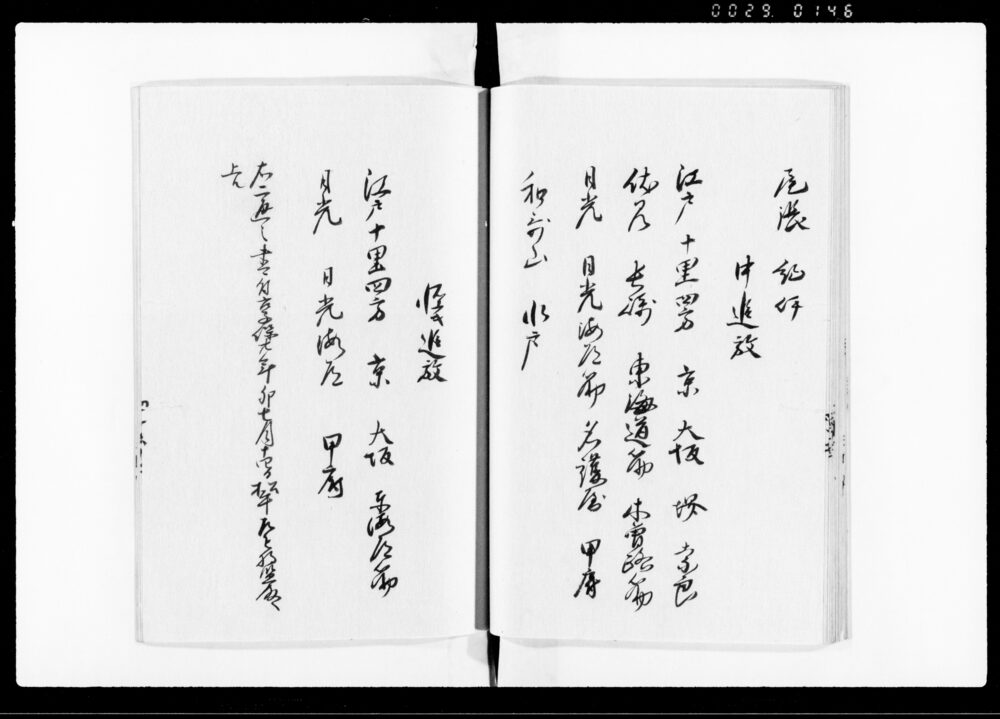 0029. 0146
尾張 紀伊
中追放
江戸十里四方 京 大坂 堺 奈良
伏見 長崎 東海道筋 木曽路筋
日光 日光海道筋 名護屋 甲府
和哥山 水戸
軽追放
江戸十里四方 京 大坂 東海道筋
日光 日光海道 甲府
右二通之書付享保八年卯七月